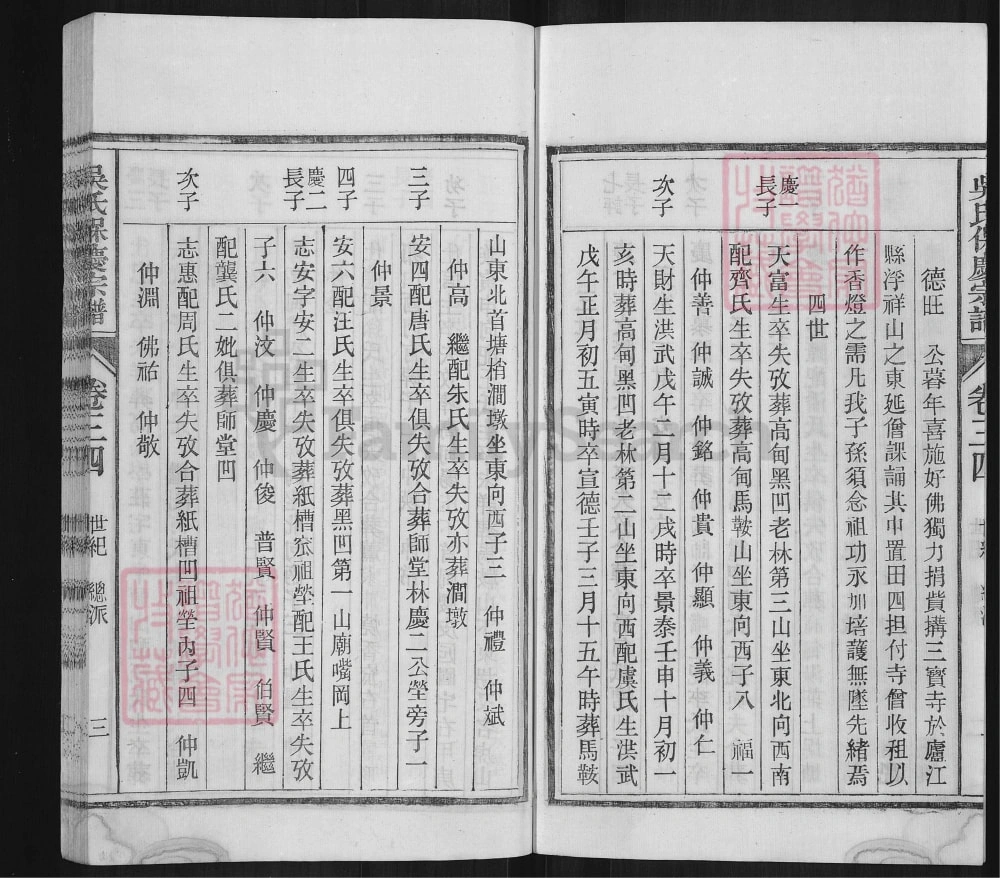 吳氏保慶宗譜 卷三四 世紀 總派
德旺 公暮年喜施好佛獨力捐貲搆三寶寺於廬江
縣浮祥山之東延僧課誦其中置田四担付寺僧收租以
作香燈之需凡我子孫須念祖功永加培護無墜先緒焉
四世
慶一長子 天富生卒失攷葬高甸黑凹老林第三山坐東北向西南
配齊氏生卒失攷葬高甸馬鞍山坐東向西子八 福一
仲善 仲誠 仲銘 仲貴 仲顯 仲義 仲仁
次子 天財生洪武戊午二月十二戌時卒景泰壬申十月初一
亥時葬高甸黑凹老林第二山坐東向西配虞氏生洪武
戊午正月初五寅時卒宣德壬子三月十五午時葬馬鞍
山東北首塘梢澗墩坐東向西子三 仲禮 仲斌
仲高 繼配朱氏生卒失攷亦葬澗墩
三子 安四配唐氏生卒俱失攷合葬師堂林慶二公塋旁子一
仲景
四子 安六配汪氏生卒俱失攷葬黑凹第一山廟嘴岡上
慶二長子 志安字安二生卒失攷葬紙槽凹祖塋配王氏生卒失攷
子六 仲汶 仲慶 仲俊 普賢 仲賢 伯賢 繼
配龔氏二妣俱葬師堂凹
次子 志惠配周氏生卒失攷合葬紙槽凹祖塋內子四 仲凱
仲淵 佛祐 仲敬
吳氏保慶宗譜 卷三四 世紀 總派 三
FamilySearch